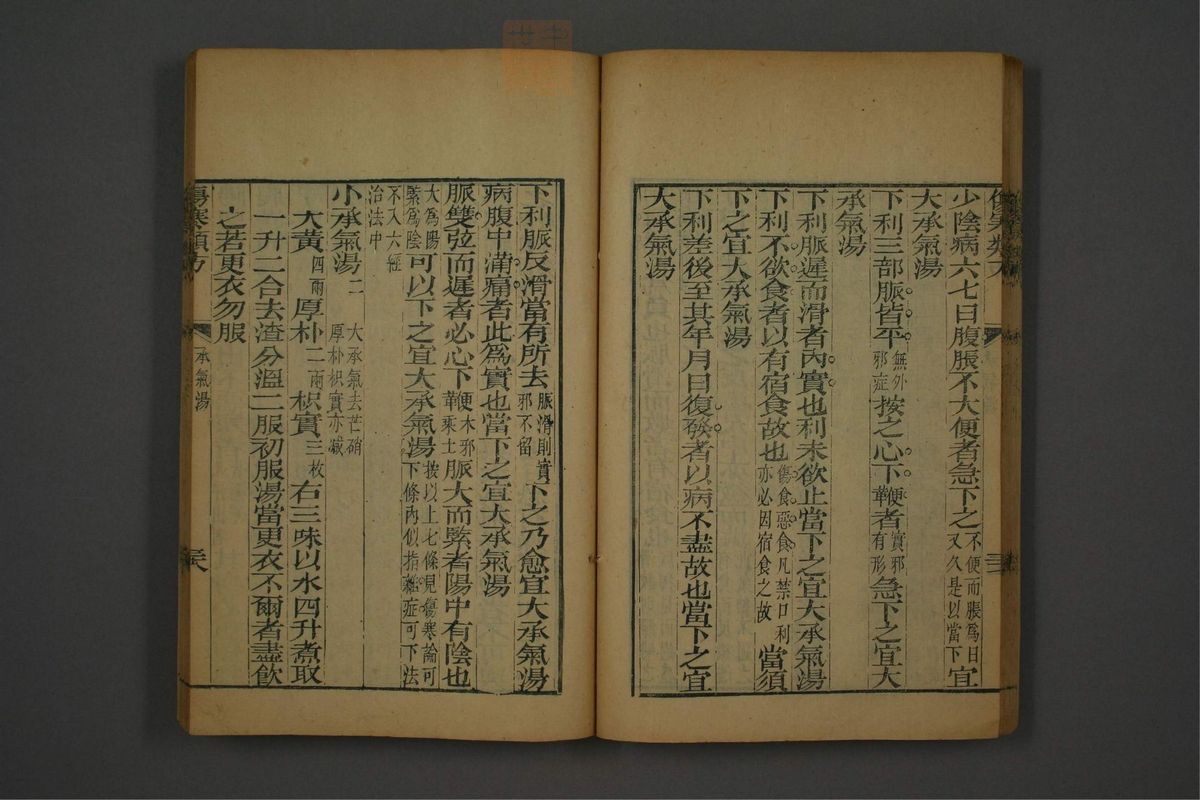 少陰病六七日腹脹不大便者急下之不便而脹爲日又久是以當下宜
大承氣湯
下利三部脈皆平無外邪症按之心下鞕者有形實邪急下之宜大
承氣湯
下利脈遲而滑者內實也利未欲止當下之宜大承氣湯
下利不欲食者以有宿食故也傷食惡食凡禁口利亦必因宿食之故當須
下之宜大承氣湯
下利差後至其年月日復發者以病不盡故也當下之宜
大承氣湯
下利脈反滑當有所去脈滑則實邪不留下之乃愈宜大承氣湯
病腹中滿痛者此爲實也當下之宜大承氣湯
脈雙弦而遲者必心下鞕木邪乘土脈大而緊者陽中有陰也
大爲陽緊爲陰可以下之宜大承氣湯按以上七條見傷寒論可下條內似指雜症可下法
不入六經治法中
小承氣湯二大承氣去芒硝厚朴枳實亦減
大黃四兩厚朴二兩枳實三枚右三味以水四升煮取
一升二合去渣分溫二服初服湯當更衣不爾者盡飲
之若更衣勿服
傷寒類方
承氣湯